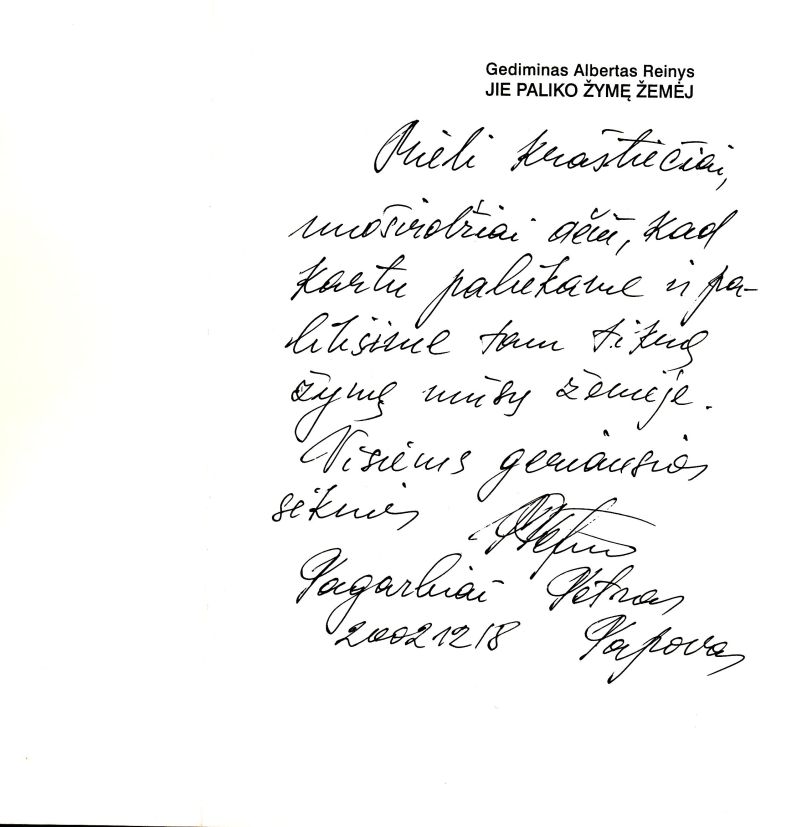 Gediminas Albertas Reinys
JIE PALIKO ŽYMĘ ŽEMĖJ
Mieli kraštiečiai,
nuoširdžiai ačiū, kad
kartu paliekame ir pa-
liksime tam tikrą
žymę mūsų žemėje.
Visiems geriausios
sėkmės
Pagarbiai Petras
20021218 Papovas